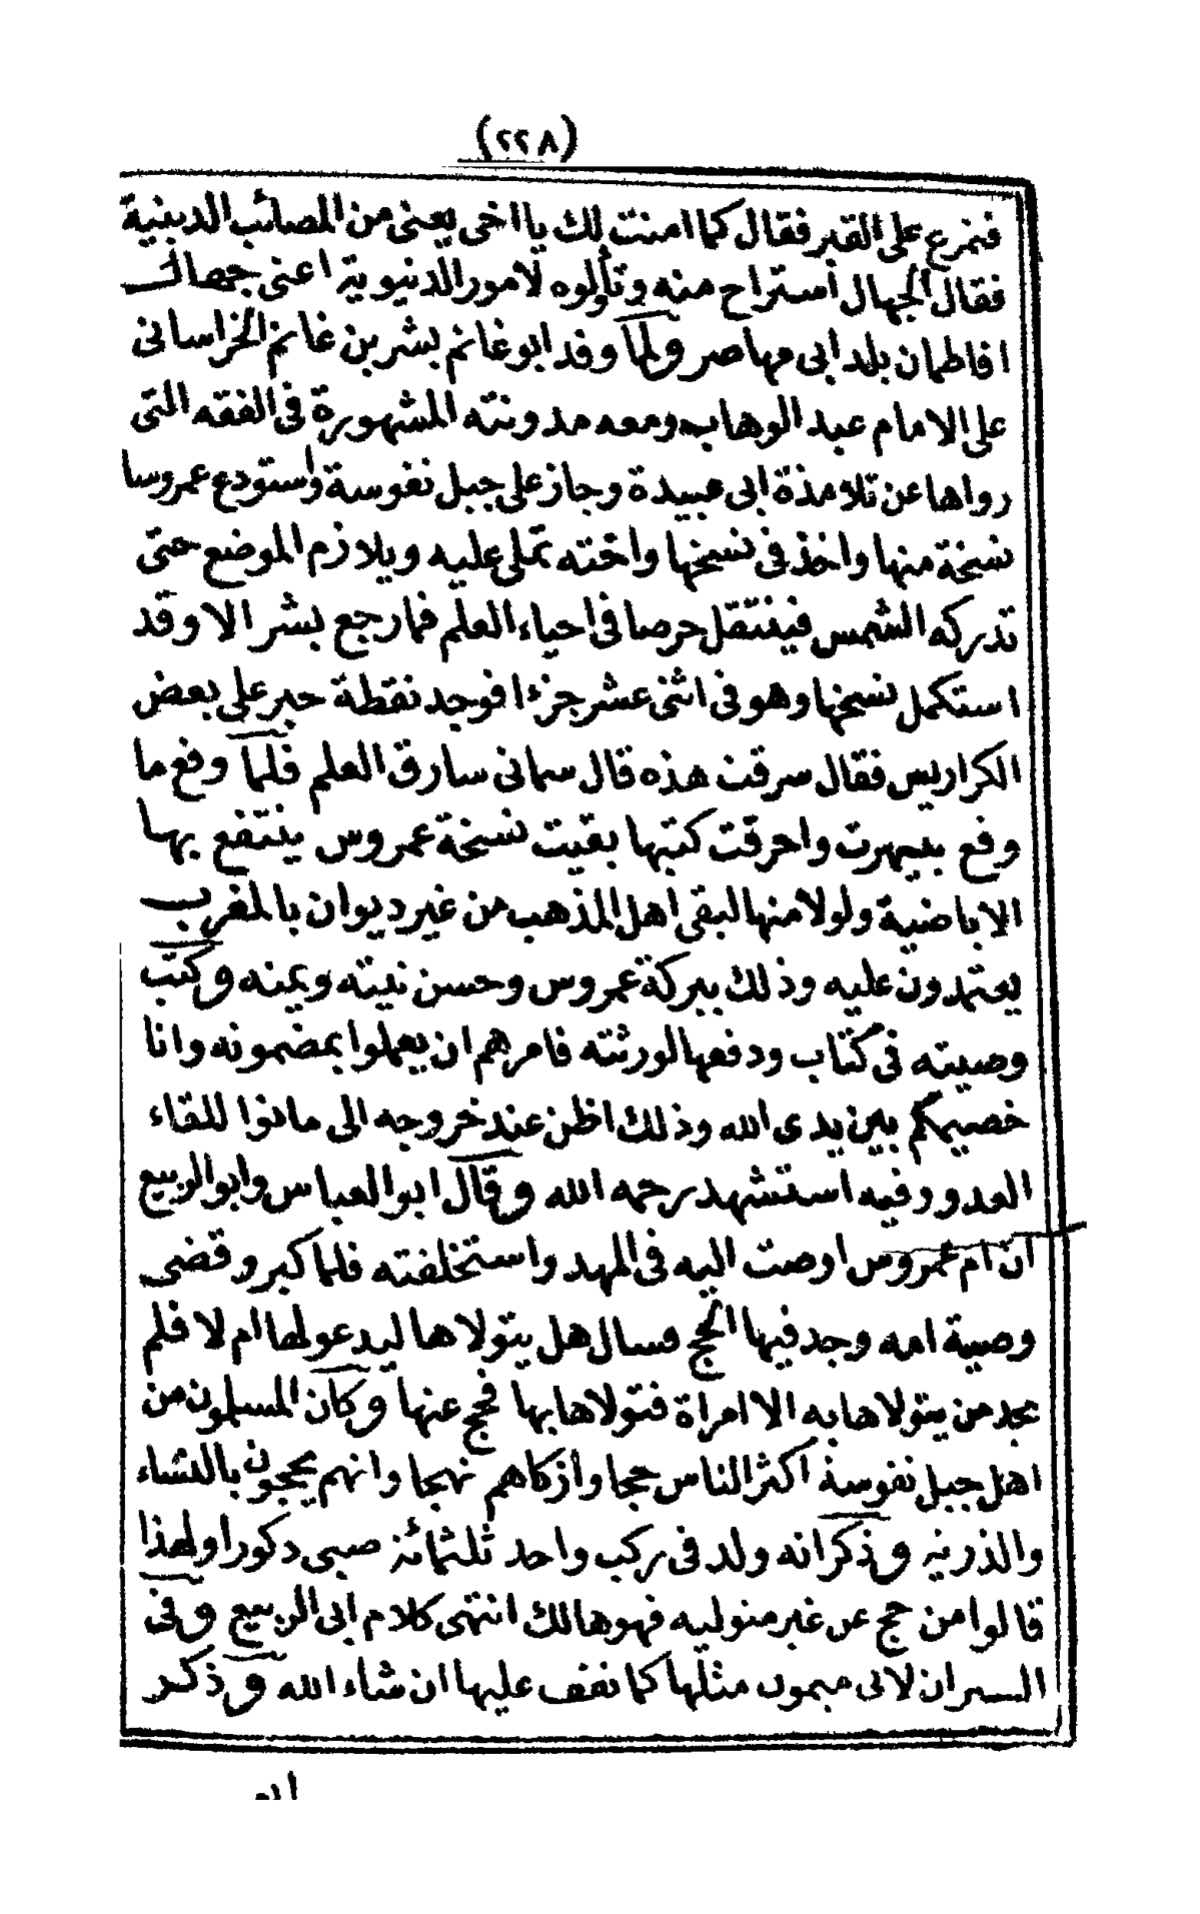 (٢٢٨)
فتمرغ على القبر فقال كما امنت لك يا اخى يعنى من المصائب الدينية
فقال الجهال استراح منه وتألوه لامور الدنيوية اعنى جهال
افاطمان بلد ابى مهاصر ولما وفد ابو غانم بشر بن غانم الخراسانى
على الامام عبد الوهاب ومعه مدونته المشهورة فى الفقه التى
رواها عن تلامذة ابى عبيدة وجاز على جبل نفوسة واستودع عمروسا
نسخة منها واخذ فى نسخها واخته تملى عليه ويلازم الموضع حتى
تدركه الشمس فينتقل حرصا فى احياء العلم فما رجع بشر الا وقد
استكمل نسخها وهو فى اثنى عشر جزءا فوجد نقطة حبر على بعض
الكراريس فقال سرقت هذه قال سمانى سارق العلم فلما وقع ما
وقع بتيهرت واحرقت كتبها بقيت نسخة عمروس ينتفع بها
الاباضية ولولا منها لبقى اهل المذهب من غير ديوان بالمغرب
يعتمدون عليه وذلك ببركة عمروس وحسن نيته ويمنه وكتب
وصيته فى كتاب ودفعها لورثته فامرهم ان يعملوا بمضمونه وانا
خصيمكم بين يدى الله وذلك اظن عند خروجه الى مانوا للقاء
العدو وفيه استشهد رحمه الله وقال ابو العباس وابو الربيع
ان ام عمروس اوصت اليه فى المهد واستخلفته فلما كبر وقضى
وصية امه وجد فيها الحج فسال هل يتولاها ليدعو لها ام لا فلم
يجد من يتولاها به الا امراة فتولاها بها فحج عنها وكان المسلمون من
اهل جبل نفوسة اكثر الناس حجا وازكاهم نهجا وانهم يحجون بالنساء
والذرية وذكر انه ولد فى ركب واحد ثلثمائة صبى ذكورا ولهذا
قالوا من حج عن غير متوليه فهو هالك انتهى كلام ابى الربيع وفى
السيران لابى ميمون مثلها كما نقف عليها ان شاء الله وذكر